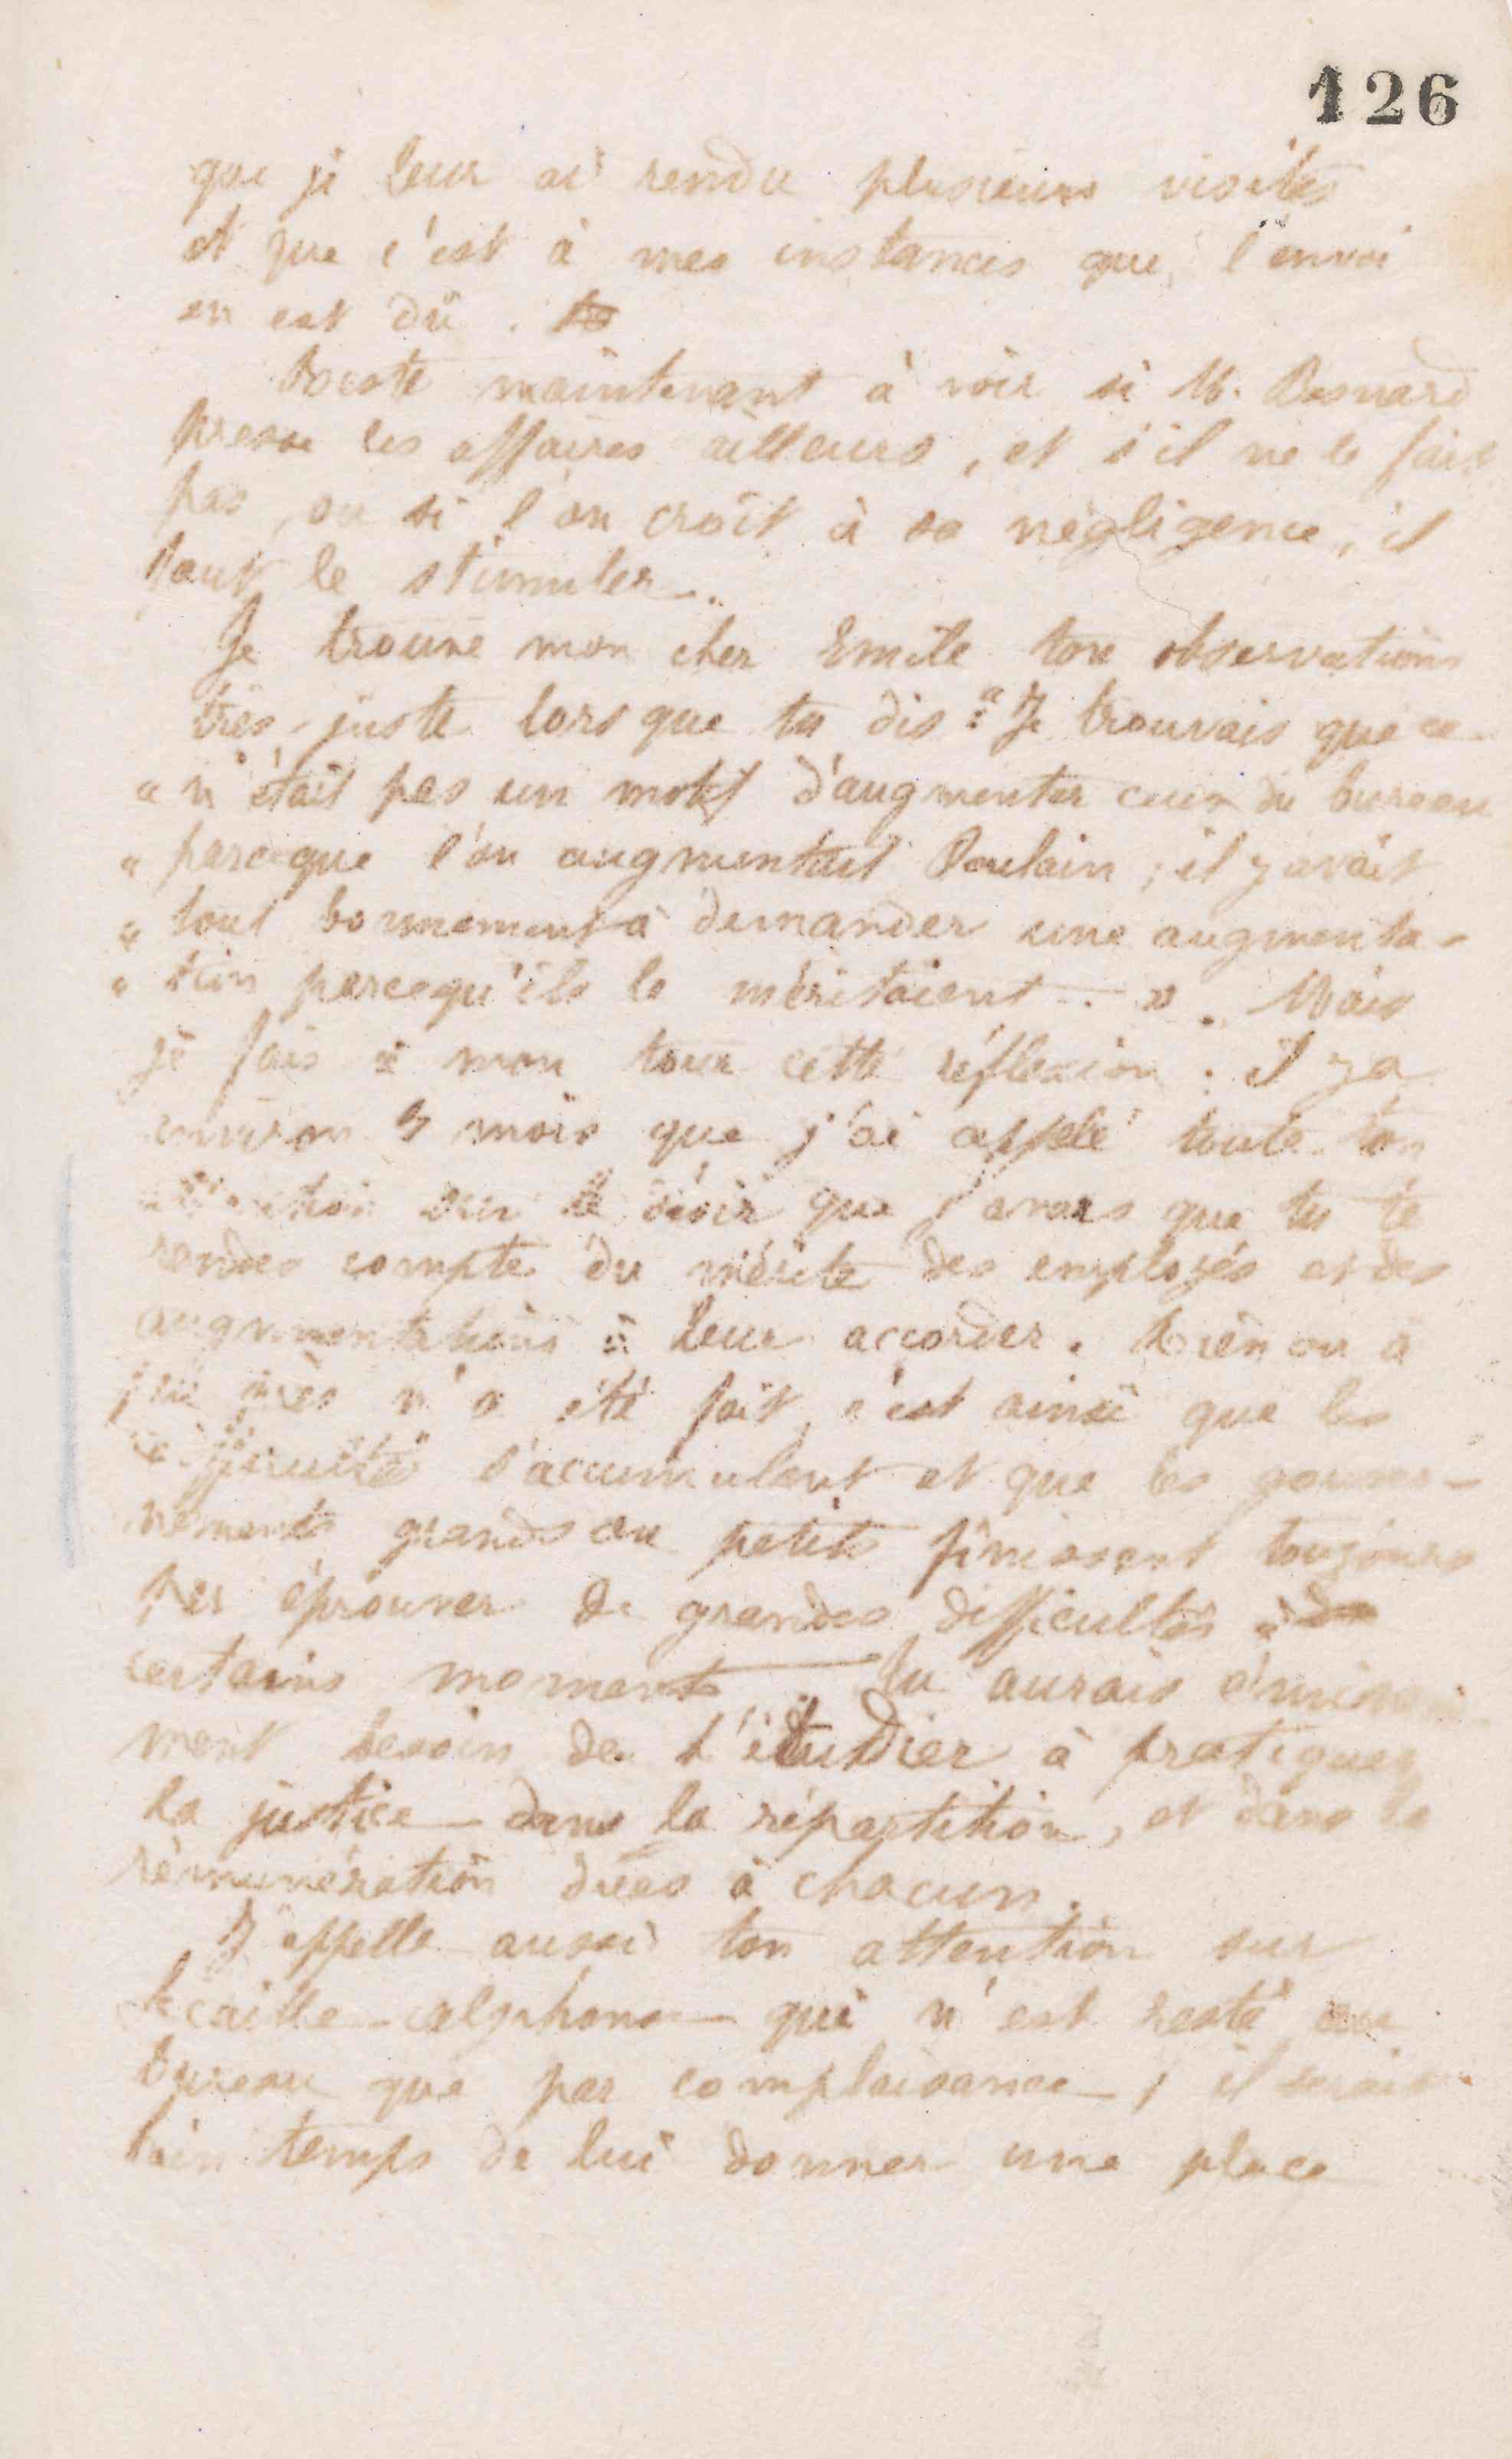 126
que je leur ai rendu plusieurs visites
et que c'est à mes instances que l'envoi
en est dû.
Reste maintenant à voir si M. Besnard
presse les affaires ailleurs, et s'il ne le fait
pas, ou si l'on croit à sa négligence, il
faut le stimuler.
Je trouve mon cher Emile ton observations
très-juste lorsque tu dis : "Je trouvais que ce
" n'était pas un motif d'augmenter ceux du bureau
" parceque l'on augmentait Poulain ; il y avait
" tout bonnement à demander une augmenta-
" tion parcequ'ils le méritaient. ". Mais
je fais à mon tour cette réflexion : il y a
environ mois que j'ai appelé toute ton
attention sur le désir que j'avais que tu te
rendes compte du mérite des employés et des
augmentations à leur accorder. Rien ou à
peu près n'a été fait, c'est ainsi que les
difficultés s'accumulent et que les gouver-
nements grands ou petits finissent toujours
par éprouver de grandes difficultés à
certains moments. Tu aurais éminem-
ment besoin de t'étudier à pratiquer
la justice dans la répartition, et dans la
rémunération dûes à chacun.
J'appelle aussi ton attention sur
Lecaille alphonse qui n'est resté au
bureau que par complaisance ; il serait
bien temps de lui donner une place